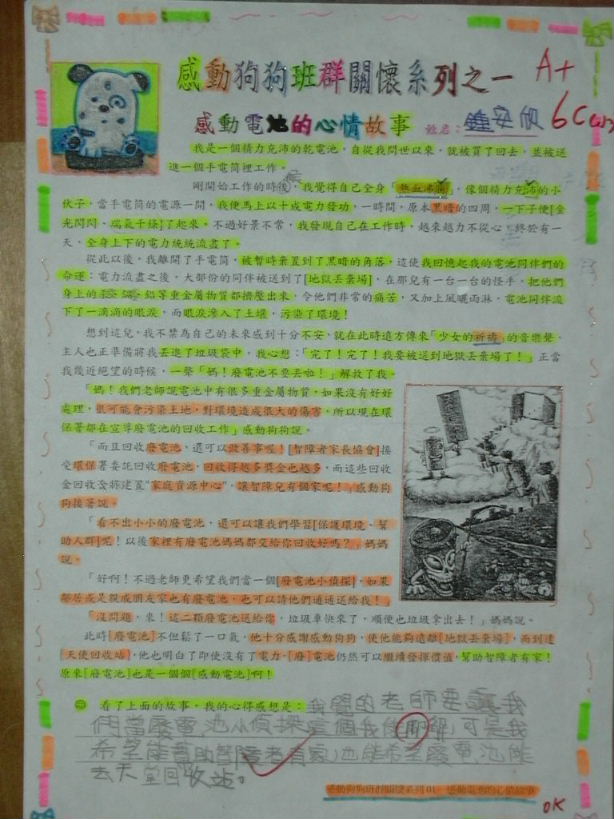 感動狗狗班群關懷系列之一
A+
感動電池的心情故事 姓名：鍾安欣
我是一個精力充沛的乾電池，自從我問世以來，就被買了回去，並被送
進一個手電筒裡工作。
剛開始工作的時候，我覺得自己全身「熱血沸騰」，像個精力充沛的小
伙子，當手電筒的電源一開，我便馬上以十成電力發功，一時間，原本黑暗的四周，一下子便[金
光閃閃、瑞氣千條]了起來。不過好景不常，我發現自己在工作時，越來越力不從心，終於有一
天，全身上下的電力統統流盡了。
從此以後，我離開了手電筒，被暫時棄置到了黑暗的角落，這使我回憶起我的電池同伴們的
命運：電力流盡之後，大部份的同伴被送到了[地獄丟棄場]，在那兒有一台一台的怪手，把他們
身上的 鉛等重金屬物質都擠壓出來，令他們非常的痛苦，又加上風曬雨淋，電池同伴流
下了一滴滴的眼淚，而眼淚滲入了土壤，污染了環境！
想到這兒，我不禁為自己的未來感到十分不安，就在此時遠方傳來「少女的祈禱」的音樂聲，
主人也正準備將我丟進了垃圾袋中，我心想：「完了！完了！我要被送到地獄丟棄場了！」正當
我幾近絕望的時候，一聲「媽！廢電池不要丟啦！」解救了我。
「媽！我們老師說電池中有很多重金屬物質，如果沒有好好
處理，很可能會污染土地，對環境造成很大的傷害，所以現在環
保署都在宣導廢電池的回收工作」感動狗狗說。
「而且回收廢電池，還可以做善事喔！[智障者家長協會]接
受環保署委託回收廢電池，回收得越多獎金也越多，而這些回收
金回收金將建置"家庭資源中心"，讓智障兒有個家呢！」感動狗
狗接著說。
「看不出小小的廢電池，還可以讓我們學習[保護環境、幫
助人群]呢！以後家裡有廢電池媽媽都交給你回收好嗎？」媽媽
說。
「好啊！不過老師更希望我們當一個[廢電池小偵探]，如果
鄰居或是親戚朋友家也有廢電池，也可以請他們通通送給我！」
「沒問題，來！這二顆廢電池送給你，垃圾車快來了，順便也垃圾拿出去！」媽媽說。
此時[廢電池]不但鬆了一口氣，他十分感謝感動狗狗，使他能夠遠離[地獄丟棄場]，而到達
[天使回收站]，他也明白了即使沒有了電力，[廢]電池仍然可以繼續發揮價值，幫助智障者有家！
原來[廢電池]也是一個個[感動電池]啊！
看了上面的故事，我的心得感想是：我們的老師要讓我
們當廢電池小偵探這個我使用解，可是我
希望能幫助智障者有家也能希望廢電池能
去天堂回收站。
感動狗狗班群關懷系列01—感動電池的心情故事
OK